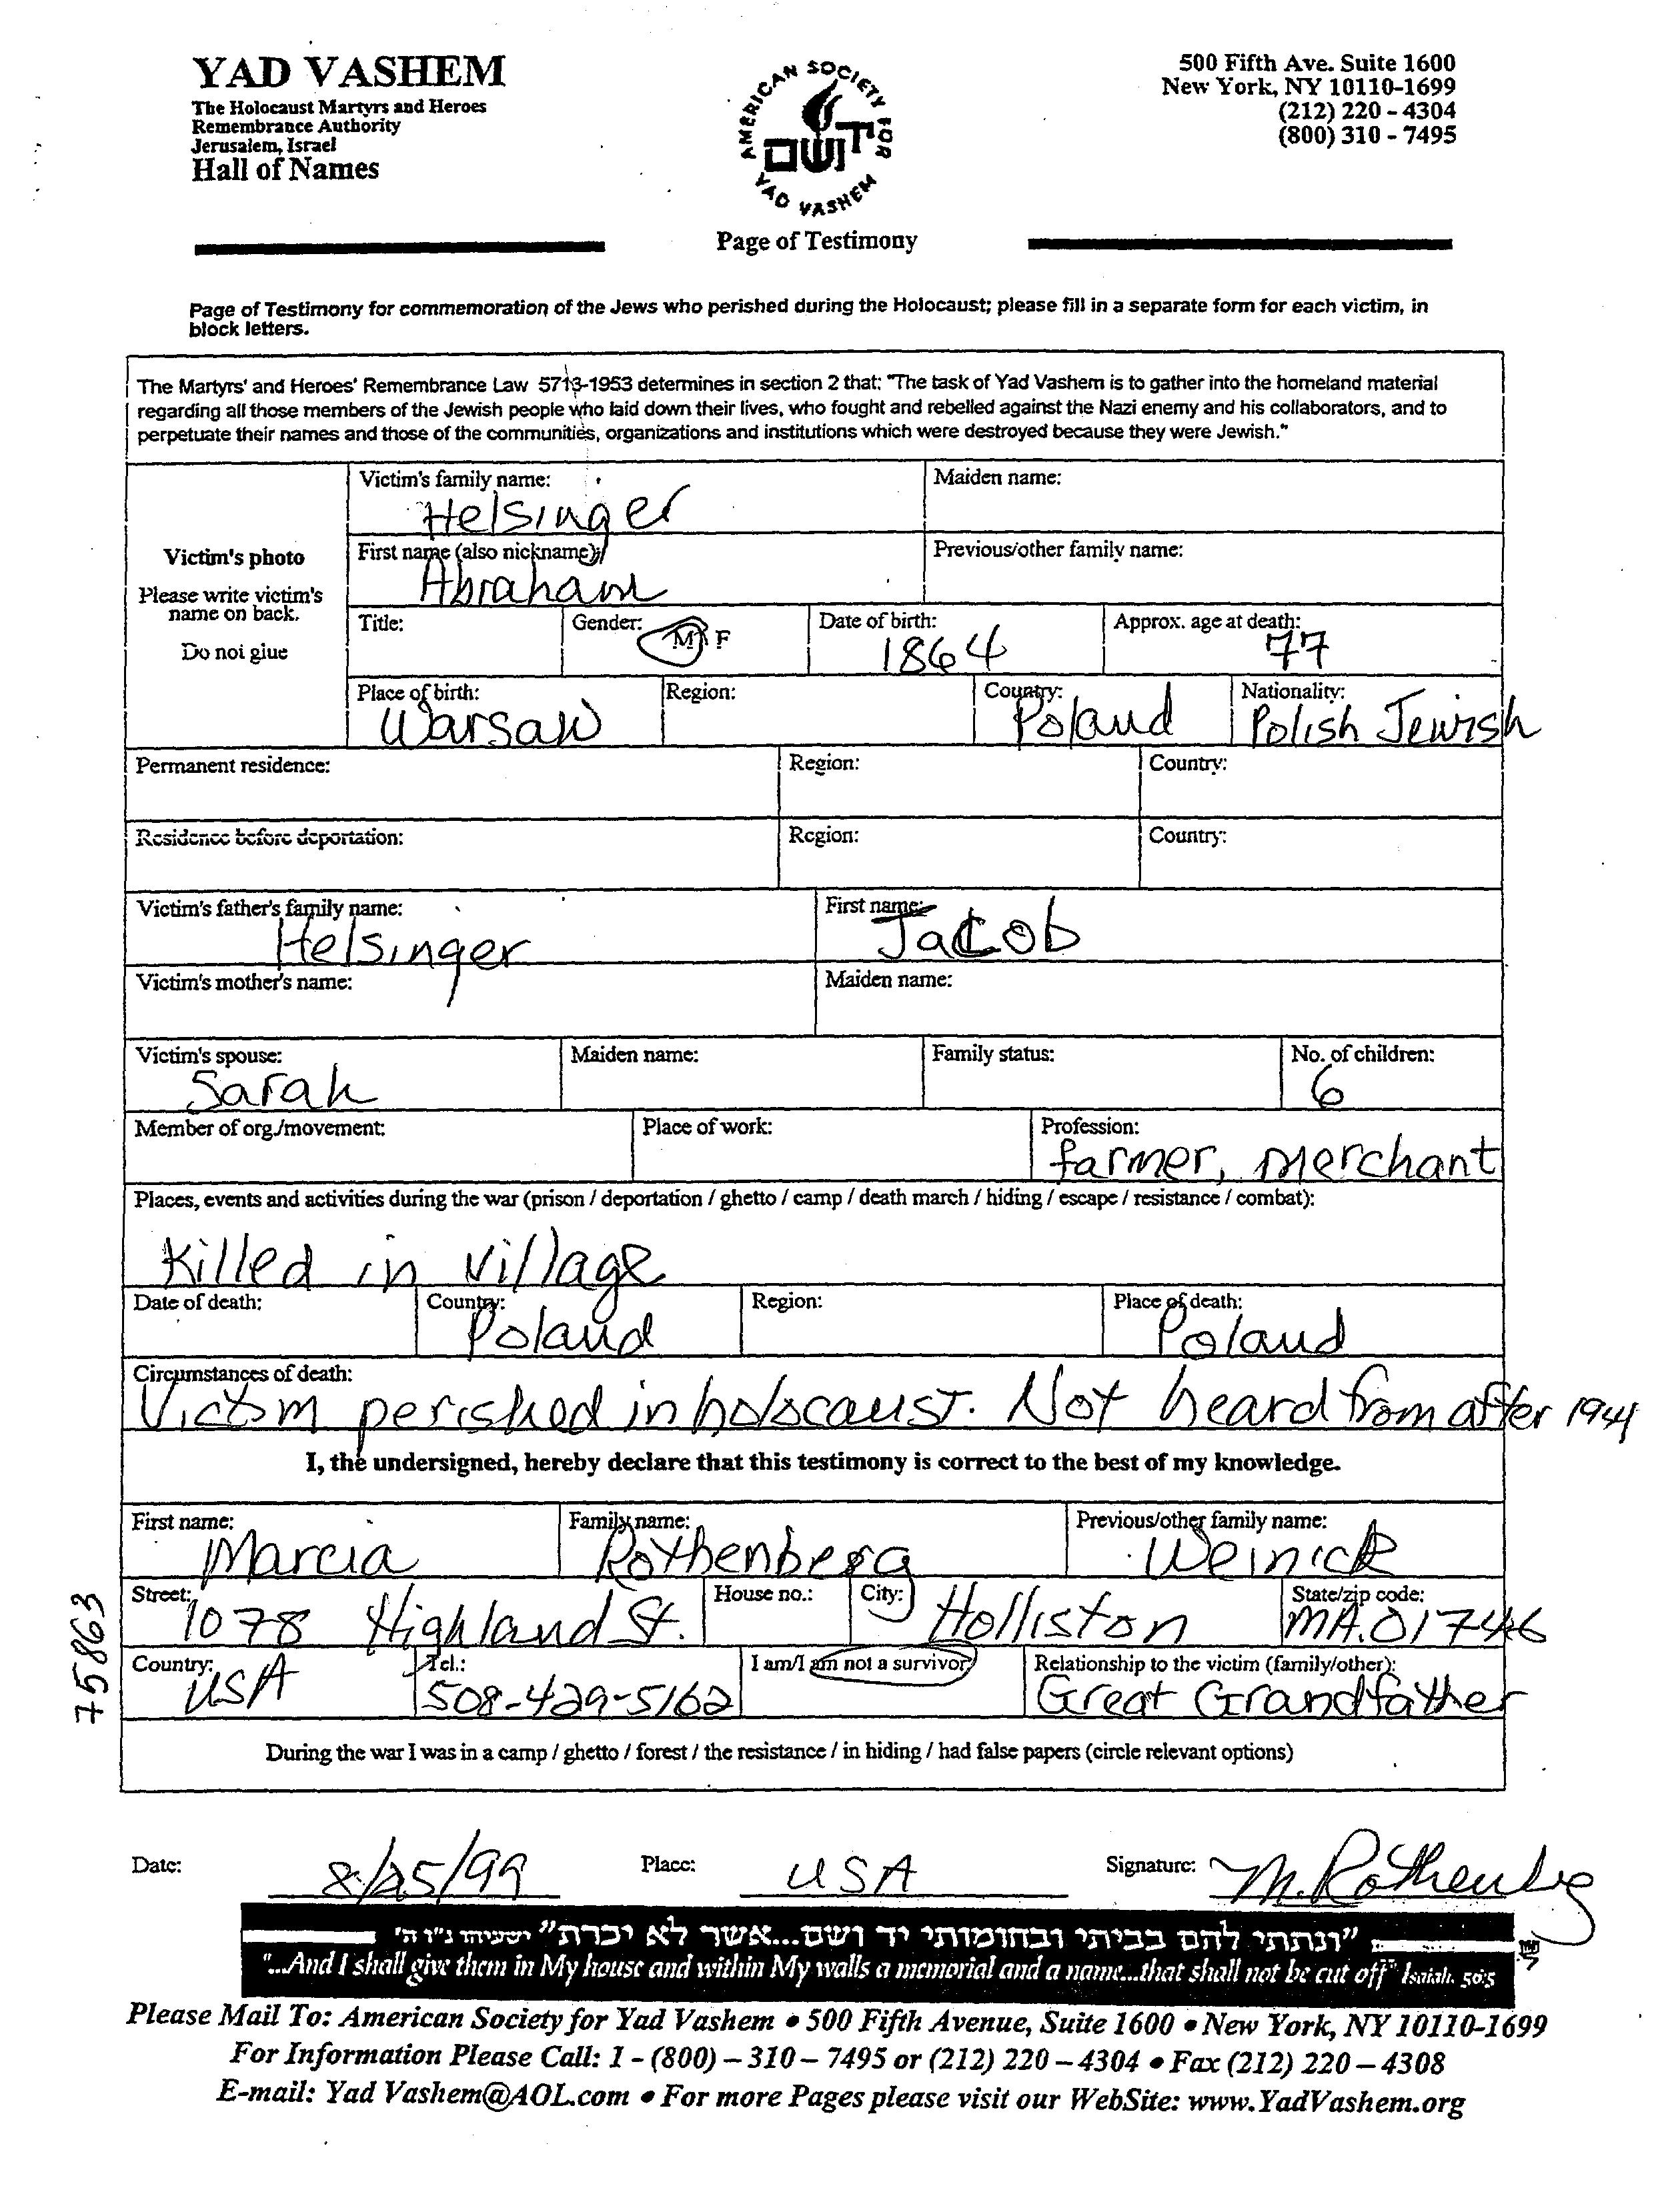 YAD VASHEM
The Holocaust Martyrs and Heroes
Remembrance Authority
Jerusalem, Israel
Hall of Names
AMERICAN SOCIETY FOR
יד ושם
YAD VASHEM
500 Fifth Ave. Suite 1600
New York, NY 10110-1699
(212) 220 - 4304
(800) 310 - 7495
Page of Testimony
Page of Testimony for commemoration of the Jews who perished during the Holocaust; please fill in a separate form for each victim, in
block letters.
The Martyrs' and Heroes' Remembrance Law 5713-1953 determines in section 2 that: "The task of Yad Vashem is to gather into the homeland material
regarding all those members of the Jewish people who laid down their lives, who fought and rebelled against the Nazi enemy and his collaborators, and to
perpetuate their names and those of the communities, organizations and institutions which were destroyed because they were Jewish."
Victim's photo
Please write victim's
name on back.
Do not glue
Victim's family name: Maiden name:
Helsinger
First name (also nickname): Previous/other family name:
Abraham
Title: Gender: M F Date of birth: Approx. age at death:
1864 77
Place of birth: Region: Country: Nationality:
Warsaw Poland Polish Jewish
Permanent residence: Region: Country:
Residence before deportation: Region: Country:
Victim's father's family name: First name:
Helsinger Jacob
Victim's mother's name: Maiden name:
Victim's spouse: Maiden name: Family status: No. of children:
Sarah 6
Member of org./movement: Place of work: Profession:
farmer, merchant
Places, events and activities during the war (prison / deportation / ghetto / camp / death march / hiding / escape / resistance / combat):
Killed in village
Date of death: Country: Region: Place of death:
Poland Poland
Circumstances of death:
Victim perished in holocaust. Not heard from after 1944
I, the undersigned, hereby declare that this testimony is correct to the best of my knowledge.
First name: Family name: Previous/other family name:
Marcia Rothenberg Weinick
Street: House no.: City: State/zip code:
1078 Highland St. Holliston MA. 01746
Country: Tel.: I am/I am not a survivor Relationship to the victim (family/other):
USA 508-429-5162 Great Grandfather
During the war I was in a camp / ghetto / forest / the resistance / in hiding / had false papers (circle relevant options)
75863
Date: 8/25/99 Place: USA Signature: M. Rothenberg
"ונתתי להם בביתי ובחומותי יד ושם...אשר לא יכרת" ישעיהו נ"ו ה'
"...And I shall give them in My house and within My walls a memorial and a name...that shall not be cut off" Isaiah. 56:5
Please Mail To: American Society for Yad Vashem • 500 Fifth Avenue, Suite 1600 • New York, NY 10110-1699
For Information Please Call: 1 - (800) – 310 – 7495 or (212) 220 – 4304 • Fax (212) 220 – 4308
E-mail: Yad Vashem@AOL.com • For more Pages please visit our WebSite: www.YadVashem.org